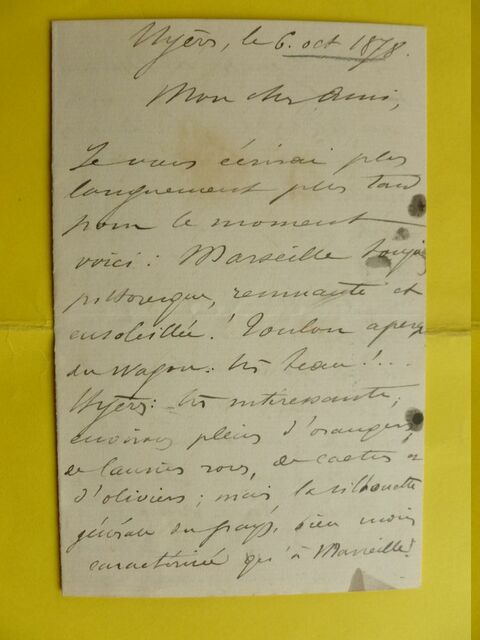 Hyères, le 6. oct 1878.
Mon cher Ami,
Je vous écrirai plus
longuement plus tard
pour le moment
voici : Marseille toujours
pittoresque, remuante et
ensoleillée ! Toulon aperçu
du wagon : très beau ! ...
Hyères : très intéressante ;
environs pleins d'orangers,
de lauriers roses, de cactus et
d'oliviers ; mais la silhouette
générale du pays, bien moins
caractérisée qu'à Marseille !